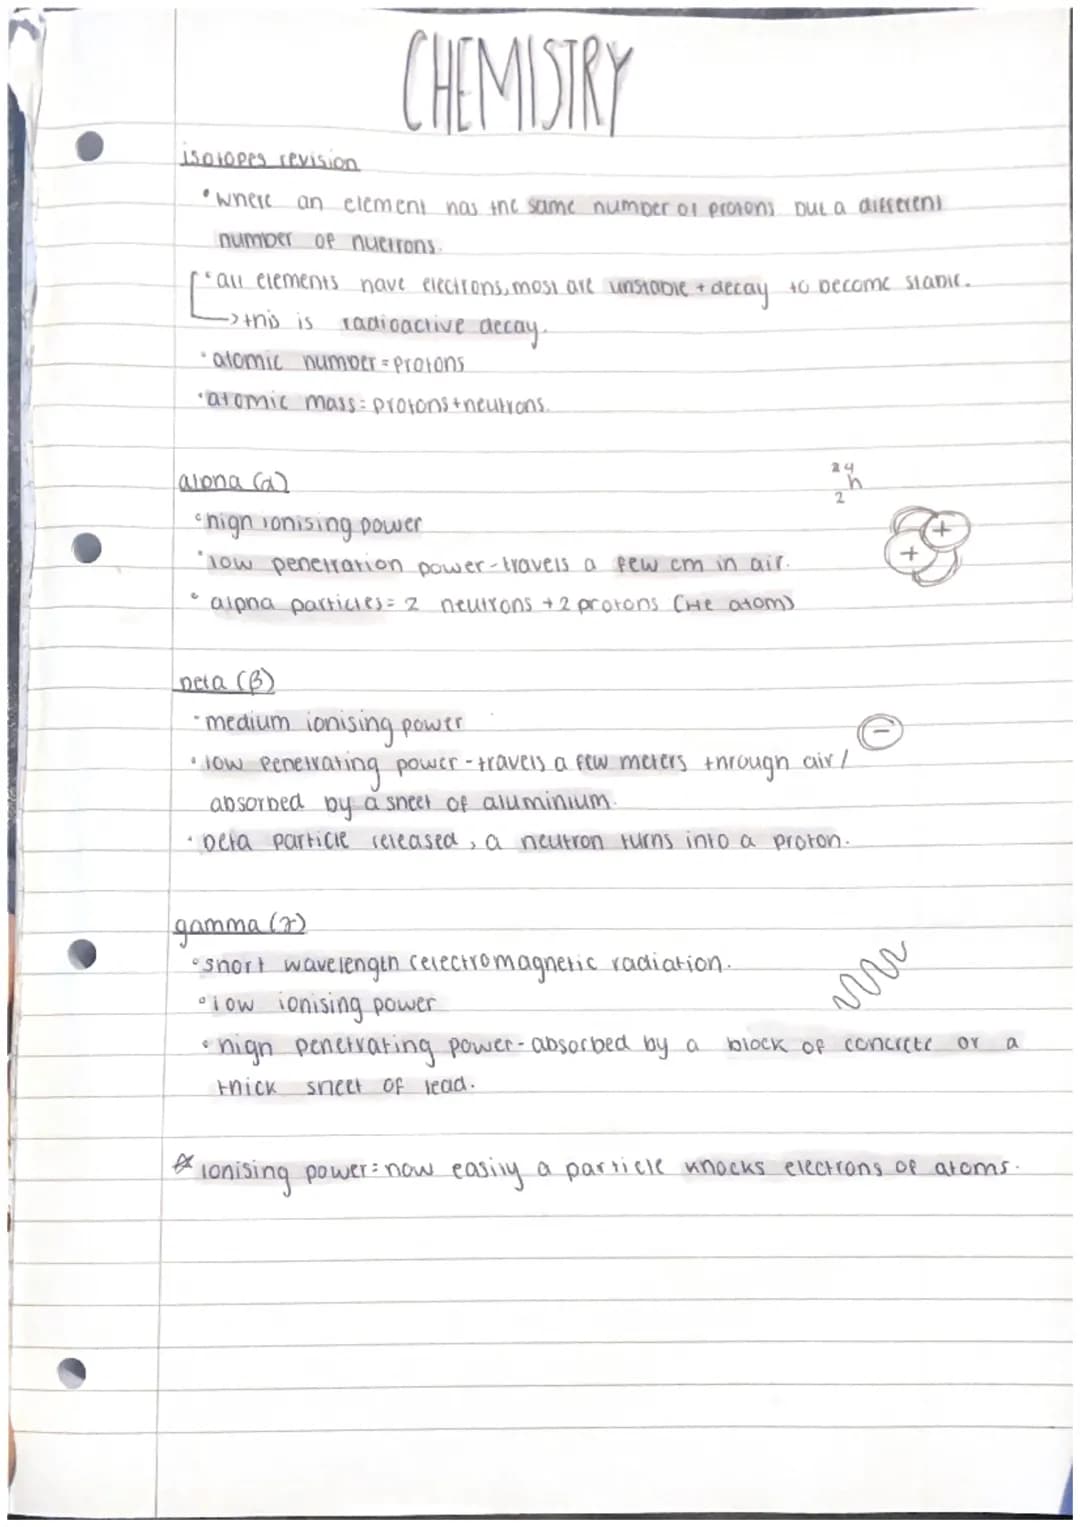 CHEMISTRY
isotopes revision
• where an element has the same number of protons but a different
number of nuetrons.
• all elements have electrons, most are unstable + decay to become stable.
→ this is radioactive decay.
• atomic number = protons
• atomic mass = protons + neutrons.
alpha (α)
24
h
2
• high ionising power
• low penetration power - travels a few cm in air.
+
+
• alpha particles = 2 neutrons + 2 protons (He atom)
beta (β)
• medium ionising power
−
• low penetrating power - travels a few meters through air /
absorbed by a sheet of aluminium.
• beta particle released, a neutron turns into a proton.
gamma (γ)
• short wavelength (electromagnetic radiation.
• low ionising power
• high penetrating power - absorbed by a block of concrete or a
thick sheet of lead.
☆ ionising power = how easily a particle knocks electrons of atoms.